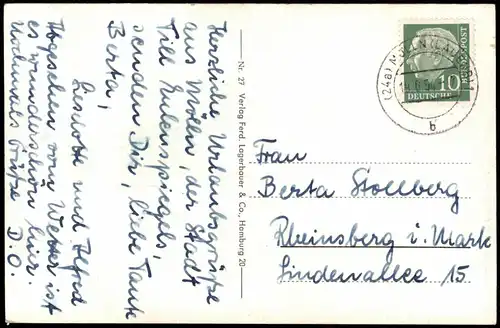 Herzliche Urlaubsgrüße
aus Mölln, der Stadt
Till Eulenspiegels,
senden Dir, liebe Tante
Berta,
Liselotte und Alfred
Abgesehen vom Wetter ist
es wunderschön hier.
Nochmals Grüße D.O.
Nr. 27 Verlag Ferd. Lagerbauer & Co., Hamburg 20
(24a) MÖLLN (LAUENB)
b
10
DEUTSCHE
BUNDESPOST
Frau
Berta Stollberg
Rheinsberg i. Mark
Lindenallee 15